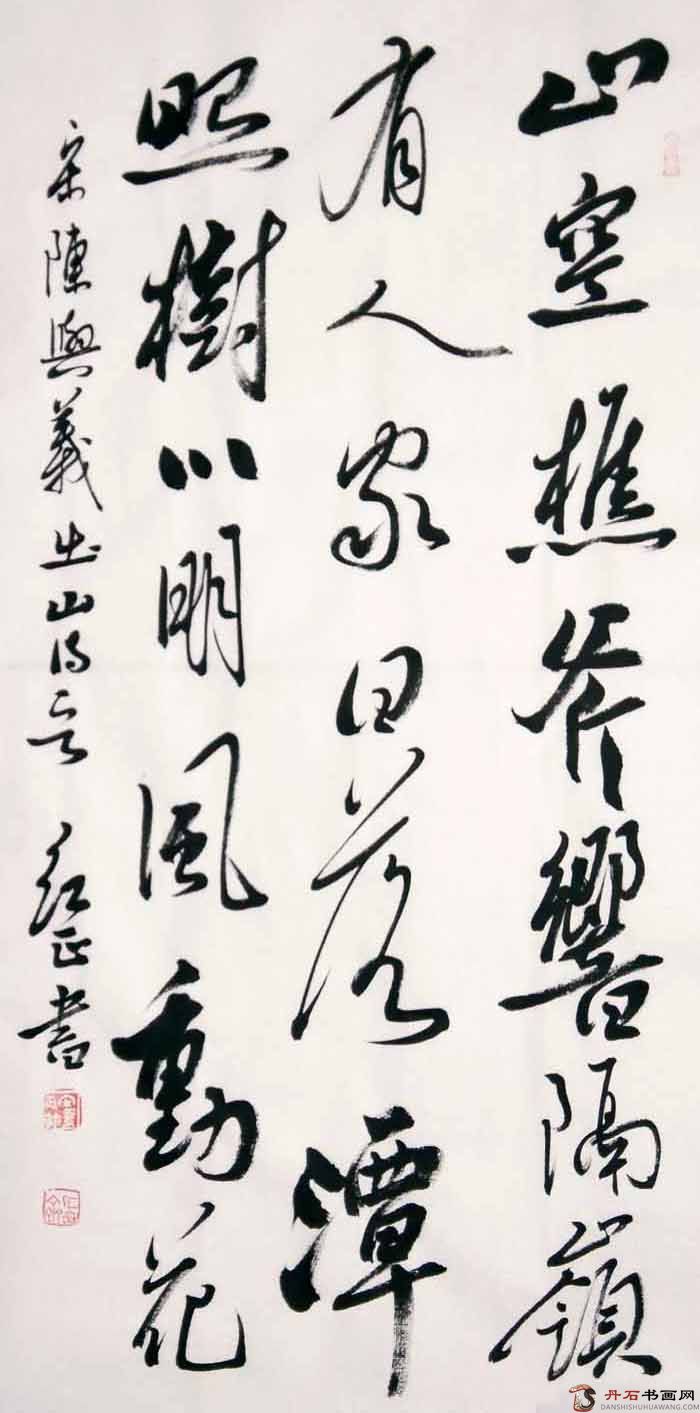 山空樵斧響隔嶺
有人家日落潭
照樹川明風動花
宋陳與義出山詩 正書
丹石书画网
DANSHISHUHUAWANG.COM